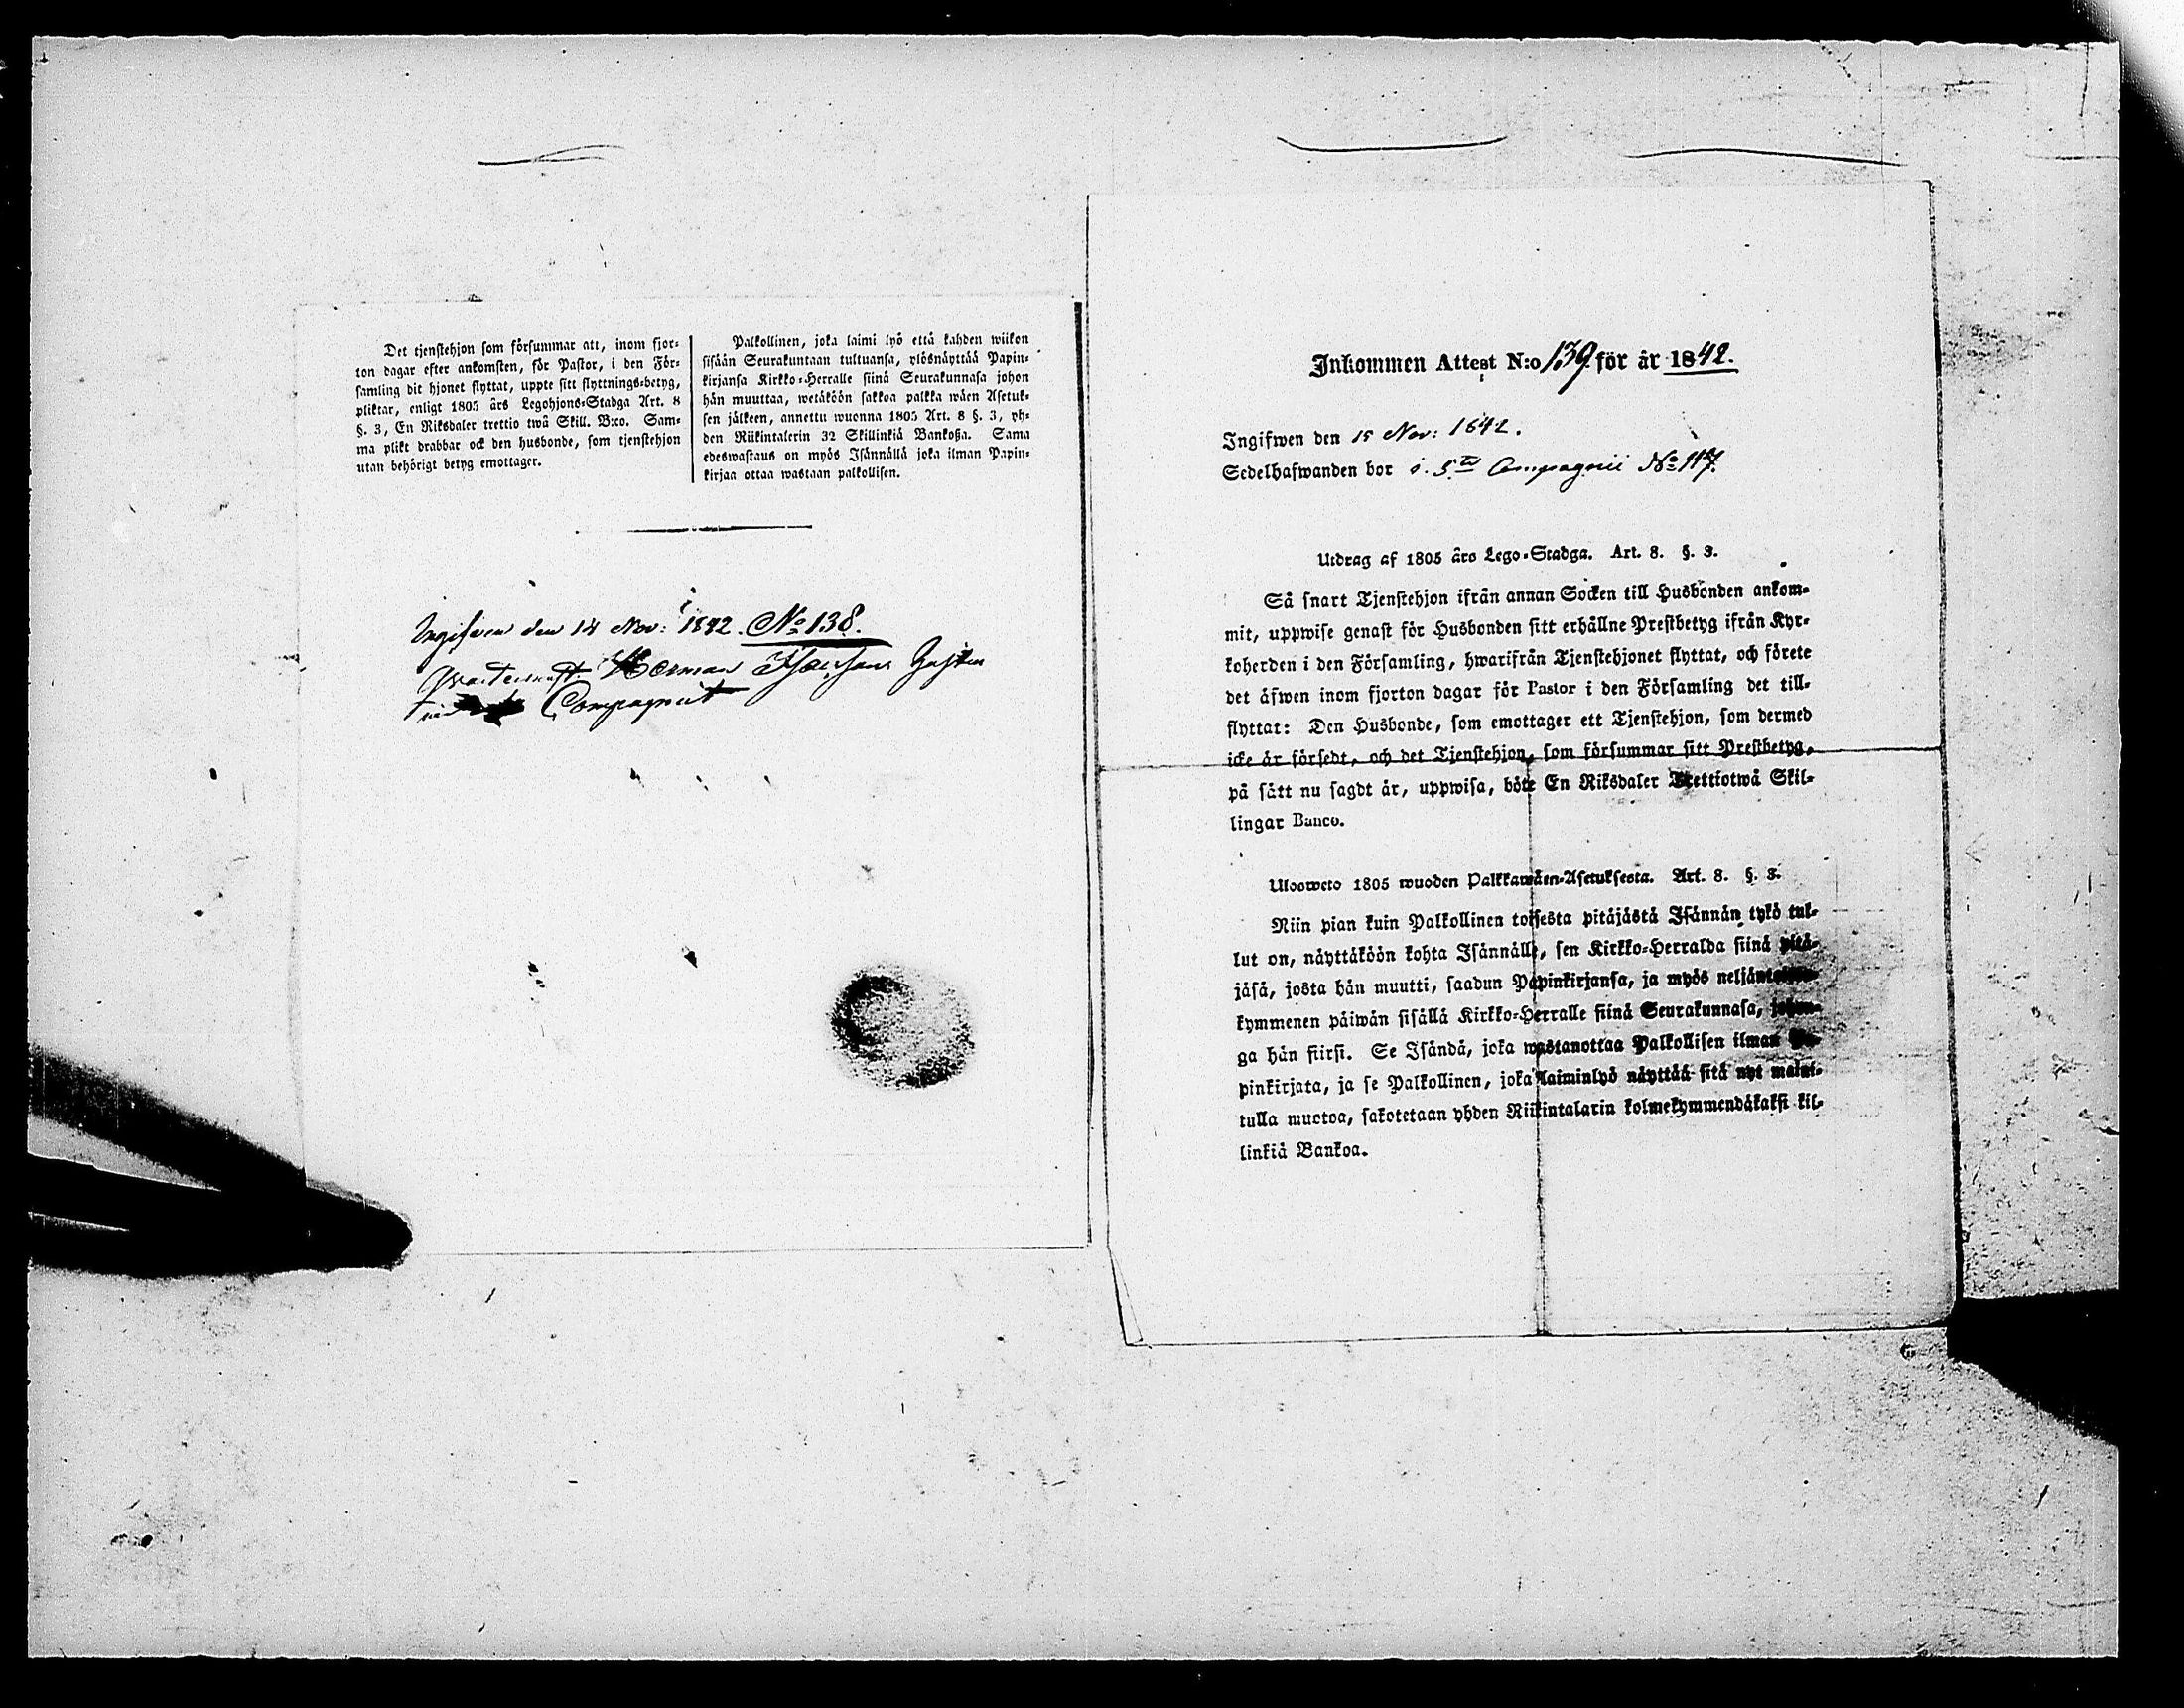 Det tjenstehjon som försummar att, inom fjor-
ton dagar efter ankomsten, för Pastor, i den För-
samling dit hjonet flyttat, uppte sitt flyttnings-betyg,
pliktar, enligt 1805 års Legohjons-Stadga Art. 8
§. 3, En Riksdaler trettio twå Skill. B:co. Sam-
ma plikt drabbar ock den husbonde, som tjenstehjon
utan behörigt betyg emottager.
Palkollinen, joka laimi lyö että kahden wiikon
sisään Seurakuntaan tultuansa, ylösnäyttää Papin-
kirjansa Kirkko-Herralle siinä Seurakunnasa johon
hän muuttaa, wetäköön sakkoa palkka wäen Asetuk-
sen jälkeen, annettu wuonna 1805 Art. 8 §. 3, yh-
den Riikintalerin 32 Skillinkiä Bankoßa. Sama
edeswastaus on myös Isännällä joka ilman Papin-
kirjaa ottaa wastaan palkollisen.
Ingifwen den 14 Nov: 1842. No 138.
Herman
Compagniet
Inkommen Attest N:o 139 för år 1842.
Ingifwen den 15 Nov: 1842.
Sedelhafwanden bor i 5te Compagnii No 117.
Utdrag af 1805 års Lego-Stadga. Art. 8. §. 3.
Så snart Tjenstehjon ifrån annan Socken till Husbonden ankom-
mit, uppwise genast för Husbonden sitt erhållne Prestbetyg ifrån Kyr-
koherden i den Församling, hwarifrån Tjenstehjonet flyttat, och förete
det äfwen inom fjorton dagar för Pastor i den Församling det till-
flyttat: Den Husbonde, som emottager ett Tjenstehjon, som dermed
icke är försedt, och det Tjenstehjon, som försummar sitt Prestbetyg,
på sätt nu sagdt är, uppwisa, böte En Riksdaler Trettiotwå Skil-
lingar Banco.
Uloosweto 1805 wuoden Palkkawäen-Asetuksesta. Art. 8. §. 3.
Niin pian kuin Palkollinen toisesta pitäjästä Isännän tykö tul-
lut on, näyttäköön kohta Isännälle, sen Kirkko-Herralda siinä pitä-
jäsä, josta hän muutti, saadun Papinkirjansa, ja myös
kymmenen päiwän sisällä Kirkko-Herralle siinä Seurakunnasa,
ga hän siirsi. Se Isändä, joka wastanottaa Palkollisen ilman Pa-
pinkirjata, ja se Palkollinen, joka laiminlyö näyttää sitä nyt maini-
tulla muotoa, sakotetaan yhden Riikintalarin kolmekymmendäkaksi kil-
linkiä Bankoa.